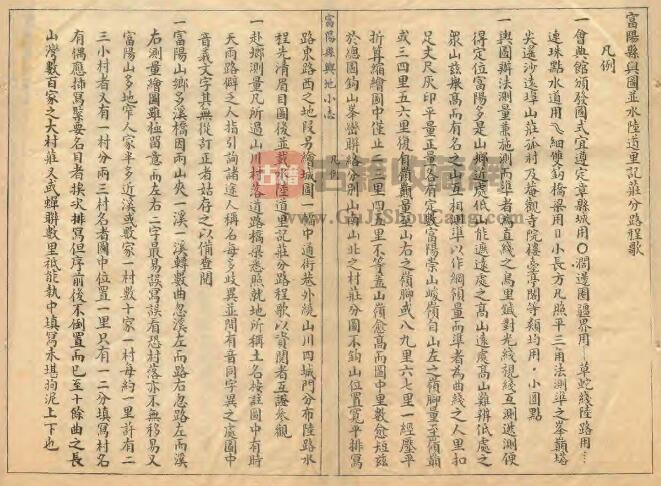 富陽縣輿圖並水陸道里記莊分路程歌
凡例
一會典館頒發圖式宜遵定章縣城用〇濶邊圈疆界用一草蛇綫陸路用…
連珠點水道用㇏細雙鈎橋梁用小長方凡照平三角法測準之峯巔塔
尖遙沙遠埠山莊孤村及菴觀寺院樓臺亭閣等類均用。小圓點
一輿圖辦法測量兼施測而準者為直綫之鳥里鍼對光綫視綫互測遞測便
得定位富陽多是山鄉近處低山能遮遠處之高山遠處高山難辨低處之
衆山茲擇高而有名之山互相測準以作綱領量而準者為曲綫之人里扣
足丈尺灰印平量正量各有定數富陽崇山峻嶺自山左之嶺脚量至嶺巔
或三四里五六里復自嶺巔量至山右之嶺脚或八九里六七里一經壓平
折算縮繪圖中僅止二三里四五里不等蓋山嶺愈高而圖中里數愈短茲
於總圖鈎山峯巒聯絡分別山南山北之村莊分圖不鈎山位置寬平排寫
富陽縣輿地小志
凡例
路東路西之地段另繪城圖一幅中通街巷外繞山川四城門分布陸路水
程先清眉目圖後並載水陸道里記莊分路程歌以資閱者互證參觀
一赴鄉測量凡所過山川村落道路橋梁悉照就地所稱土名按註圖中有時
天雨路僻之人指引詢諸途人稱名每多歧異並間有音同字異之處圖中
音義文字其無從訂正者姑存之以備查閱
一富陽山鄉多溪橋因兩山夾一溪一溪轉數曲忽溪左而路右忽路左而溪
右測量繪圖雖極留意而左右二字最易誤寫誤看恐村落亦不無移易又
富陽山多地窄人家半多近溪或數家一村數十家一村每約一里許有二
三小村者又有一村分兩三村名者圖中位置一里只有一二分填寫村名
有偶應摘寫緊要名目者挨次排寫但序前後不倒置而已至十餘曲之長
山灣數百家之大村莊又或蟬聯數里祇能執中填寫未堪拘泥上下也